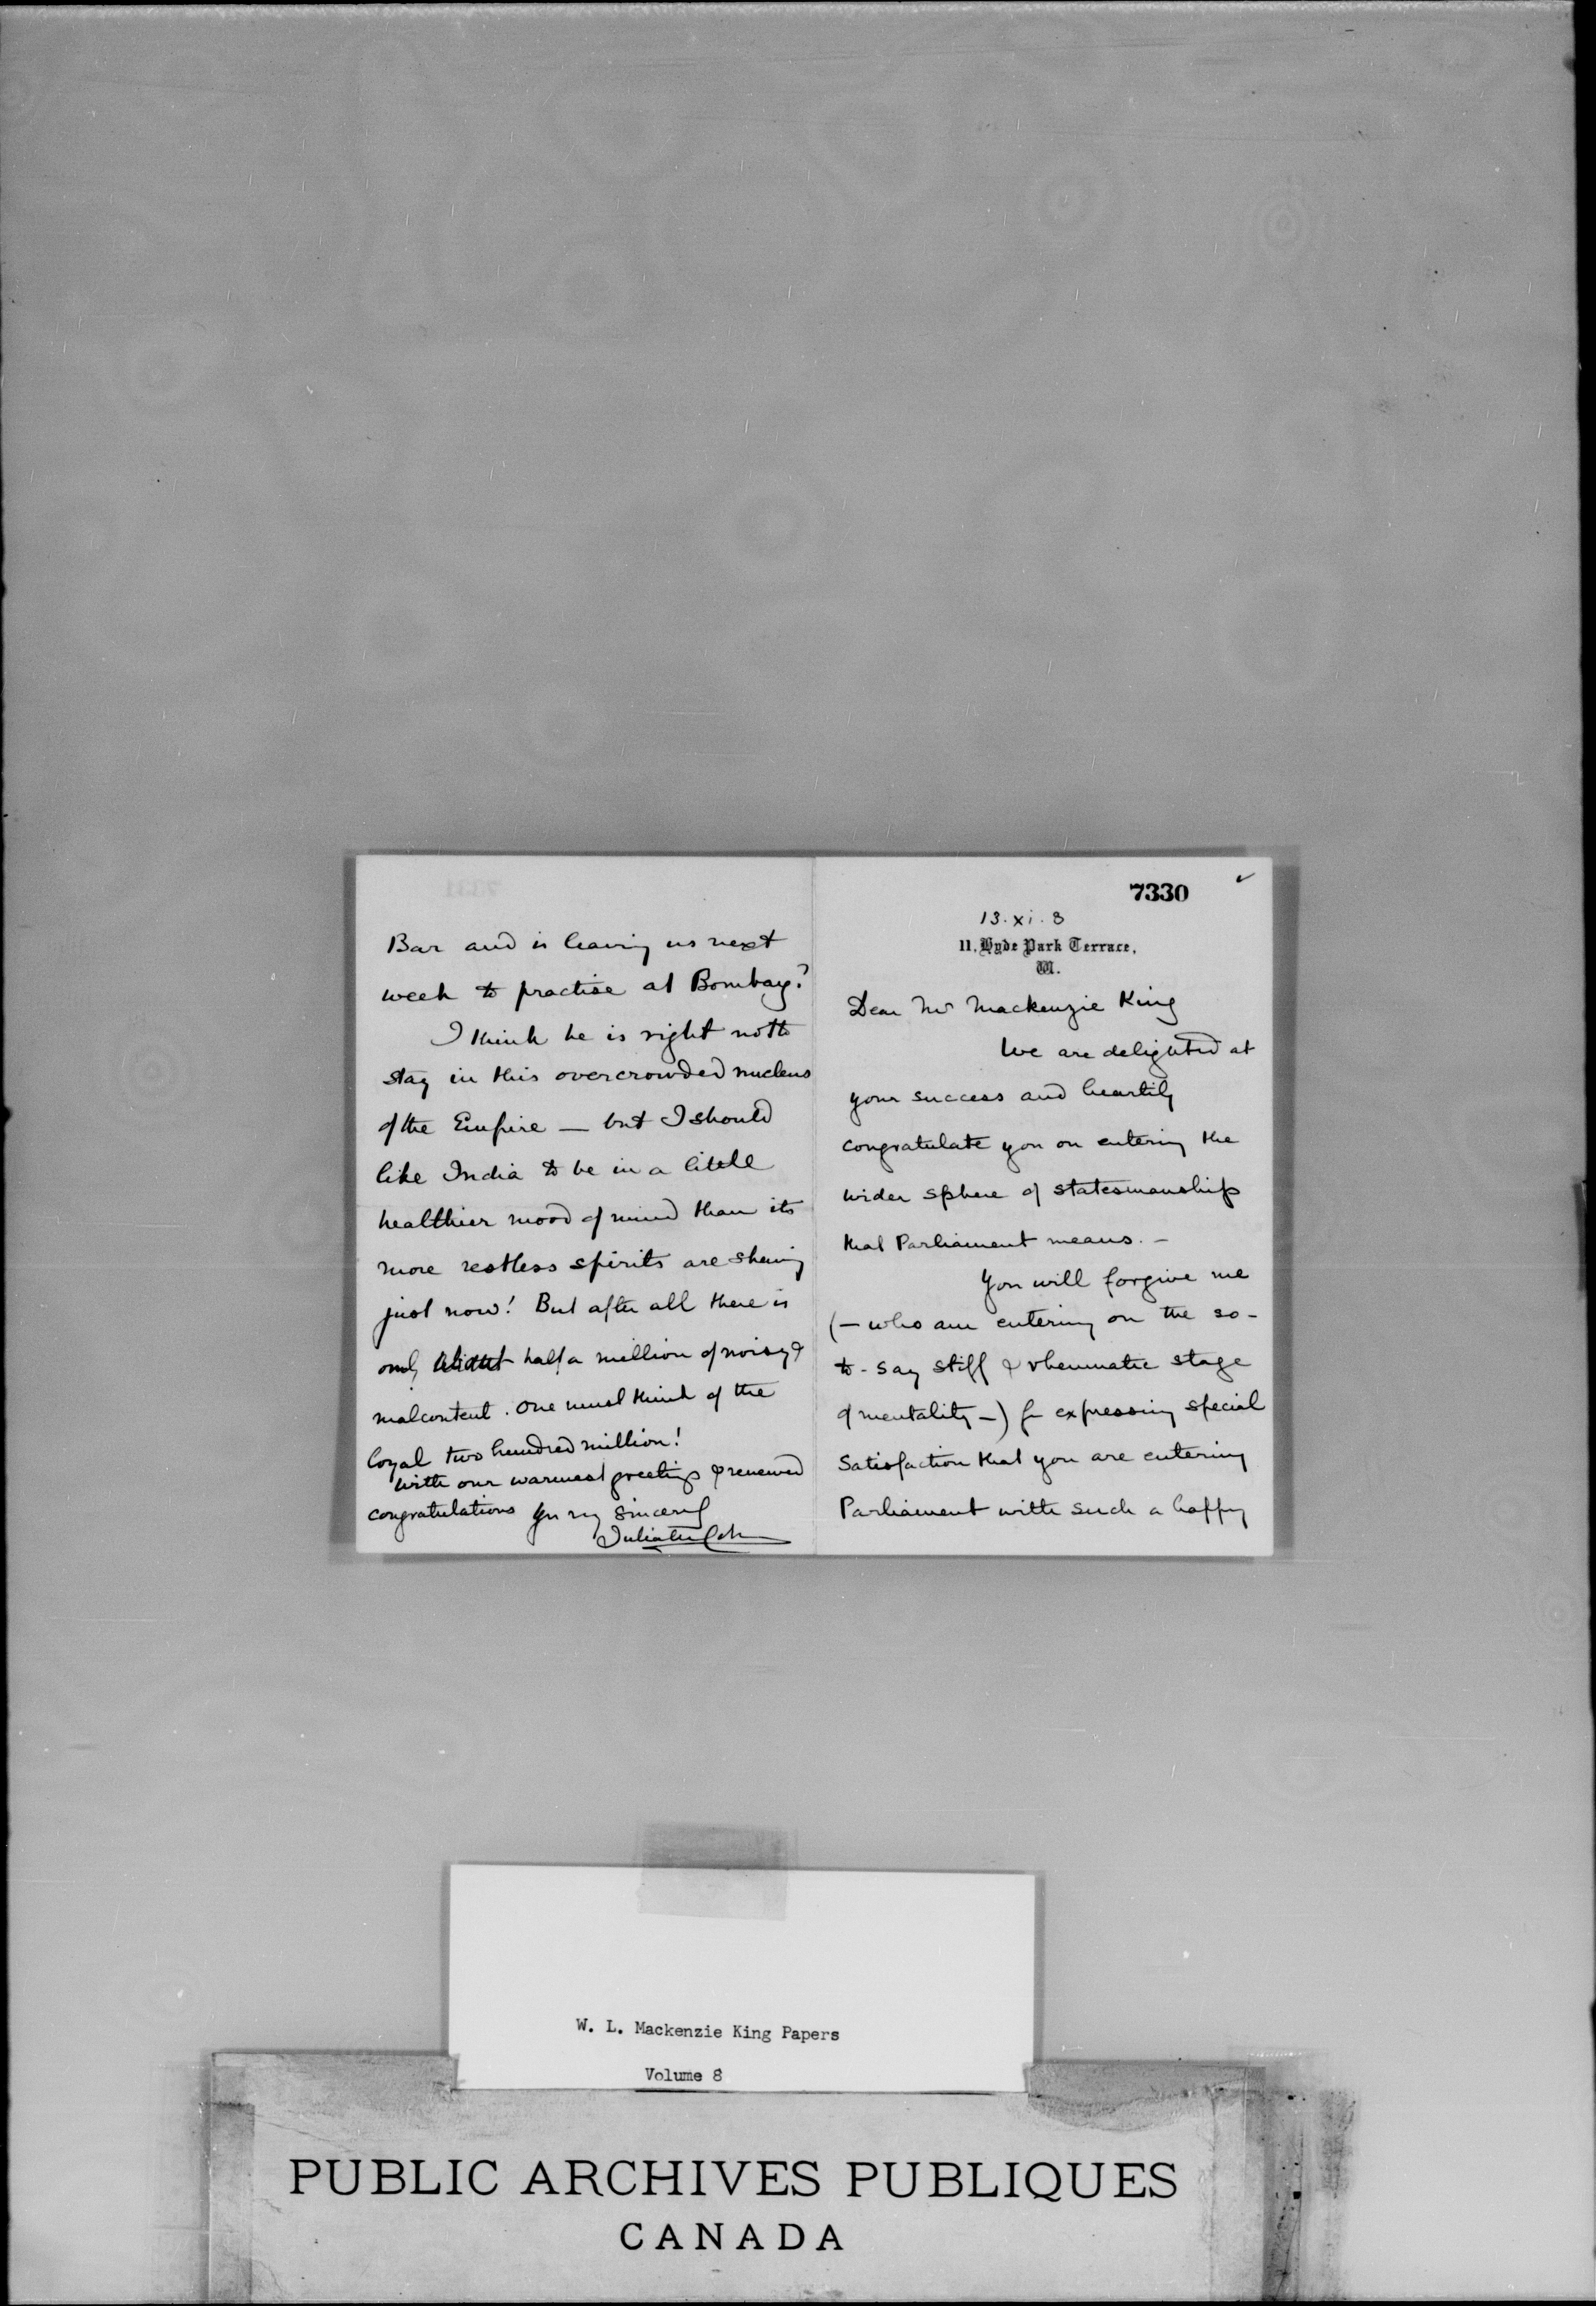 7330
13.xi.8
11, Hyde Park Terrace,
W.
Dear Mr Mackenzie King
We are delighted at
your success and heartily
congratulate you on entering the
wider sphere of statesmanship
that Parliament means. –
You will forgive me
(– who am entering on the so-
to-say stiff & rheumatic stage
of mentality –) for expressing special
satisfaction that you are entering
Parliament with such a happy
Bar and is leaving us next
week to practise at Bombay?
I think he is right not to
stay in this overcrowded nucleus
of the Empire — but I should
like India to be in a little
healthier mood of mind than its
more restless spirits are shewing
just now! But after all there is
only about half a million of noisy &
malcontent. One must think of the
loyal two hundred million!
With our warmest greetings & renewed
congratulations Yrs vy sincerely
W. L. Mackenzie King Papers
Volume 8
PUBLIC ARCHIVES PUBLIQUES
CANADA